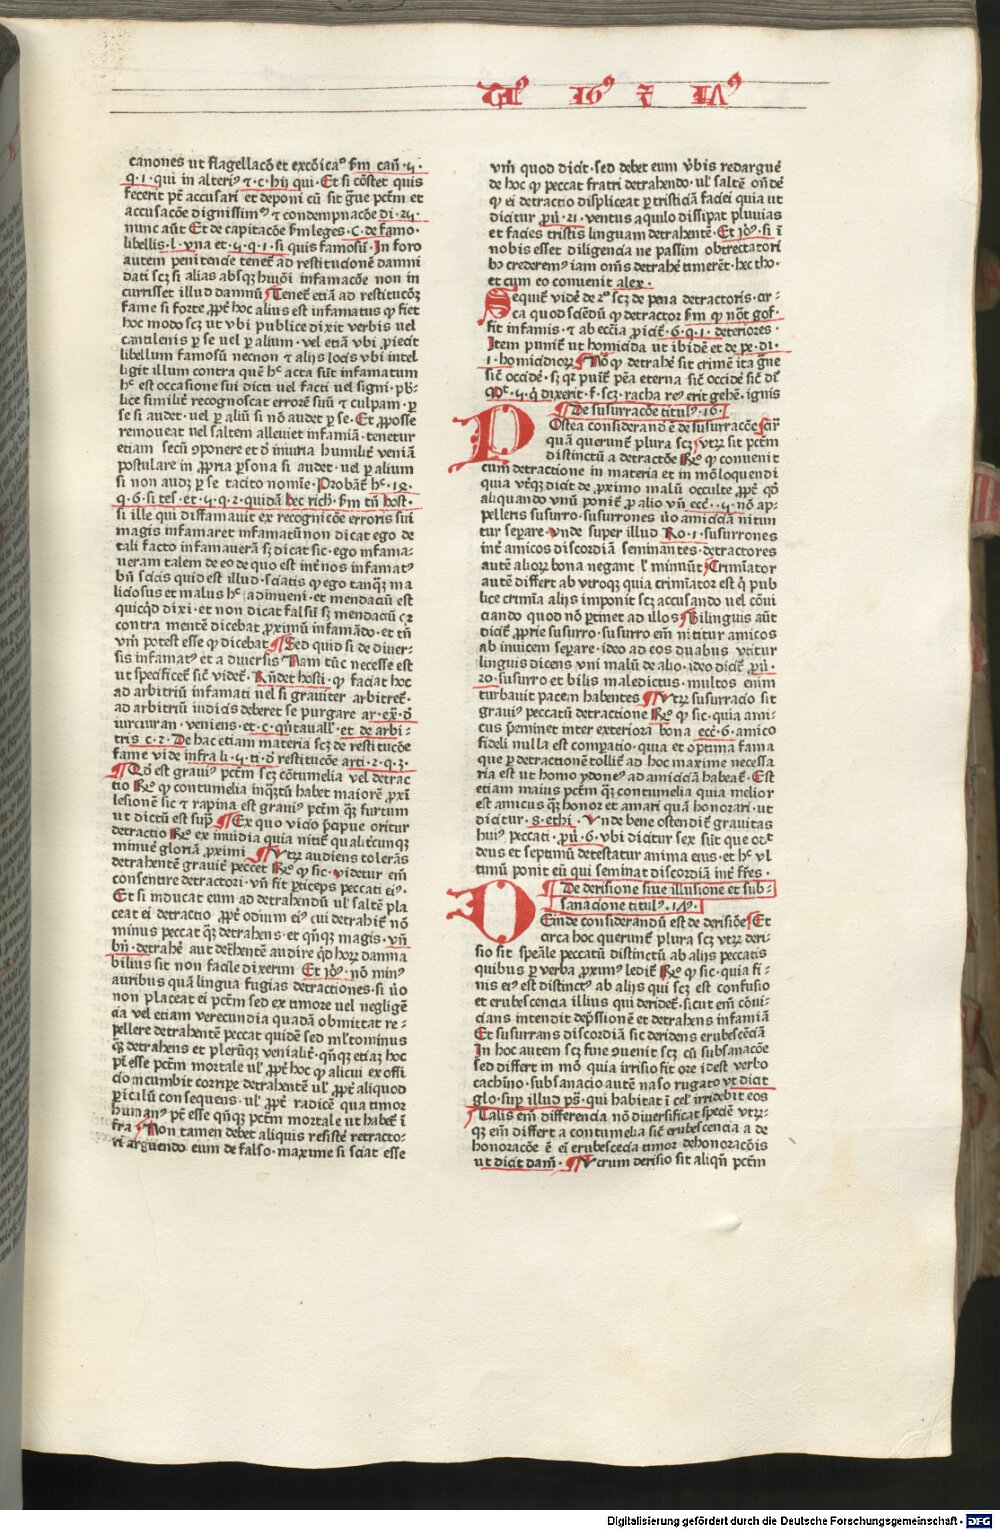 canones ut flagellacõ et excõicaº fm cañ · 5 ·
q · 1 · qui in alteriꝰ ⁊ · c · hij qui · Et si cõstet quis
fecerit pt̃ accusari et deponi cũ sit gͣue pctm̃ et
accusacõe dignissimꝰ ⁊ condempnacõe di · 25 ·
nunc aũt Et de capitacõe fm leges · C · de famo ·
libellis · l · vna et · 5 · q · 1 · si quis famosũ · In foro
autem penitencie tenet̃ ad restitucionẽ damni
dati scꝫ si alias absqꝫ huiõi infamacõe non in
currisset illud damnũ Tenet̃ etiã ad restitucõꝫ
fame si forte ꝓpt̃ hoc alius est infamatus ꝙ fiet
hoc modo scꝫ ut vbi publice dixit verbis uel
cantilenis ꝑ se uel ꝑ alium · vel etiã vbi ꝓiecit
libellum famosũ necnon ⁊ alijs locis vbi intel
ligit illum contra quẽ hᷦ acta sũt infamatum
hᷦ est occasione sui dicti uel facti uel signi · pb̃
lice similit̃ recognoscat errorẽ suũ ⁊ culpam · ꝑ
se si audet · uel ꝑ aliũ si nõ audet ꝑ se · Et ꝓ posse
remoueat uel saltem alleuiet infamiã · tenetur
etiam secũ ꝯponere et d̃ iniuria humilit̃ veniã
postulare in ꝓpria ꝑsona si audet · uel ꝑ alium
si non audꝫ ꝑ se tacito nomĩe · Probat̃ hᷦ · 18 ·
q · 6 · si tes · et · 5 · q · 2 · quidã hec rich̃ · fm tñ host ·
si ille qui diffamauit ex recognicõe erroris sui
magis infamaret infamatũ non dicat ego de
tali facto infamauerã sꝫ dicat sic · ego infama-
ueram talem de eo de quo est int̃ nos infamatꝰ
bñ scitis quid est illud · sciatis ꝙ ego tanqꝫ ma
liciosus et malus hᷦ adinueni · et mendaciũ est
quicqd dixi · et non dicat falsũ sꝫ mendaciũ qꝛ
contra mentẽ dicebat ꝓximũ infamãdo · et tñ
vm̃ potest esse ꝙ dicebat Sed quid si de diuer-
sis infamatꝰ et a diuersis Nam tũc necesse est
ut specificet̃ sic̃ videt̃ · Rñdet hosti · ꝙ faciat hoc
ad arbitriũ infamati uel si grauiter arbitret̃ ·
ad arbitriũ iudicis deberet se purgare ar · ex̃ · d̃
iurciuran · veniens · et · c · qñtauall̃ · et de arbi-
tris c · 2 · De hac etiam materia scꝫ de restitucõe
fame vide infra li · 5 · ti · d̃ restitucõe arti · 2 · q · 3 ·
Qd̃ est grauiꝰ pctm̃ scꝫ cõtumelia vel detrac
tio Rº ꝙ contumelia inqꝫtũ habet maiorẽ ꝓxĩ
lesionẽ sic ⁊ rapina est grauiꝰ pctm̃ qꝫ furtum
ut dictũ est supͣ Ex quo vicio p̃cipue oritur
detractio Rº ex inuidia quia nitit̃ qualit̃cunqꝫ
minuẽ gloriã ꝓximi Vtrꝫ audiens tolerãs
detrahentẽ grauit̃ peccet Rº ꝙ sic · videtur em̃
consentire detractori · vñ fit ꝑticeps peccati eiꝰ ·
Et si inducat eum ad detrahendũ ul̃ saltẽ pla
ceat ei detractio ꝓpt̃ odium eiꝰ cui detrahit̃ nõ
minus peccat qꝫ detrahens · et qñqꝫ magis · vñ
bñ · detrahẽ aut det̃hentẽ audire qd horꝝ damna
bilius sit non facile dixerim Et ioº · nõ minꝰ
auribus quã lingua fugias detractiones · si ũo
non placeat ei pctm̃ sed ex timore uel negligẽ
cia vel etiam verecundia quadã obmittat re-
pellere detrahentẽ peccat quidẽ sed ml̃tominus
qꝫ detrahens et plerũqꝫ venialit̃ · qñqꝫ etiaꝫ hoc
pt̃ esse pctm̃ mortale ul̃ ꝓpt̃ hoc ꝙ alicui ex offi
cio incumbit corriꝑe detrahentẽ ul̃ ꝓpt̃ aliquod
ꝑiculũ consequens · ul̃ ꝓpt̃ radicẽ qua timor
humanꝰ pt̃ esse qñqꝫ pctm̃ mortale ut habet̃ ĩ
fra Non tamen debet aliquis resistẽ retracto-
ri arguendo eum de falso · maxime si sciat esse
vm̃ quod dicit · sed debet eum ṽbis redarguẽ
de hoc ꝙ peccat fratri detrahendo · ul̃ saltẽ oñdẽ
ꝙ ei detractio displiceat ꝑ tristiciã faciei quia ut
dicitur ꝓũ · 25 · ventus aquilo dissipat pluuias
et facies tristis linguam detrahentẽ · Et ioº · si ĩ
nobis esset diligencia ne passim obtrectatori
bꝰ crederemꝰ iam oms̃ detrahẽ timerẽt · hec tho ·
et cum eo conuenit alex ·
Sequit̃ vidẽ de 2º scꝫ de pena detractoris · cir-
ca quod sciẽdũ ꝙ detractor fm ꝙ nõt gof ·
fit infamis · ⁊ ab eccĩa ꝓicit̃ · 6 · q · 1 · deteriores ·
Item punit̃ ut homicida ut ibidẽ et de pe · di ·
1 · homicidiorꝝ Nõ ꝙ detrahẽ sit crimẽ ita gͣue
sic̃ occidẽ · sꝫ qꝛ puit̃ pẽa eterna sic̃ occidẽ sic̃ dr̃
Mt̃ · 5 · q̃ dixerit · f · scꝫ · racha reꝰ erit gehẽ · ignis
De susurracõe titulꝰ · 16 ·
Postea considerandũ ẽ de susurracõe cir̃
quã querunt̃ plura scꝫ vtrꝫ sit pctm
distinctũ a detractõe Rº ꝙ conuenit
cum detractione in materia et in mõ loquendi
quia vtqꝫ dicit de ꝓximo malũ occulte ꝓpt̃ qd̃
aliquando vnũ ponit̃ ꝓ alio vñ ecc̃ · 5 nõ ap-
pelleris susurro · susurrones ũo amiciciã nitun
tur seꝑare · vnde super illud Ro · 1 · susurrones
int̃ amicos discordiã seminantes · detractores
autẽ aliorꝝ bona negant l̃ minuũt Crimĩator
autẽ differt ab vtroqꝫ quia crimĩator est q̃ pub
lice crimĩa alijs imponit scꝫ accusando uel cõui
ciando quod nõ ꝑtinet ad illos Bilinguis aũt
dicit̃ ꝓprie susurro · susurro em̃ nititur amicos
ab inuicem seꝑare · ideo ad eos duabus vtitur
linguis dicens vni malũ de alio · ideo dicit̃ ꝓũ ·
20 · susurro et bilis maledictus · multos enim
turbauit pacem habentes Vtrꝫ susurracio sit
grauiꝰ peccatũ detractione Rº ꝙ sic · quia ami-
cus p̃minet inter exteriora bona ecc̃ · 6 · amico
fideli nulla est comꝑatio · quia et optima fama
que ꝑ detractionẽ tollit̃ ad hoc maxime necessa
ria est ut homo ydoneꝰ ad amiciciã habeat̃ · Est
etiam maius pctm̃ qꝫ contumelia quia melior
est amicus qꝫ honor et amari quã honorari · ut
dicitur · 8 · ethi · Vnde bene ostendit̃ grauitas
huiꝰ peccati · ꝓũ · 6 · vbi dicitur sex sũt que odᷦ
deus et septimũ detestatur anima eius · et hᷦ vl
timũ ponit eũ qui seminat discordiã int̃ fr̃es ·
De derisione siue illusione et sub-
sanacione titulꝰ · 17 ·
Deinde considerandũ est de derisiõe Et
circa hoc querunt̃ plura scꝫ vtrꝫ deri-
sio sit speãle peccatũ distinctũ ab alijs peccatis
quibus ꝑ verba ꝓximꝰ ledit̃ Rº ꝙ sic · quia fi-
nis eiꝰ est distinctꝰ ab alijs qui scꝫ est confusio
et erubescencia illius qui deridet̃ · sicut em̃ cõui-
cians intendit dep̃ssionẽ et detrahens infamiã
Et susurrans discordiã sic deridens erubescẽciã
In hoc autem scꝫ fine ꝯuenit scꝫ cũ subsanacõe
sed differt in mõ · quia irrisio fit ore id est verbo
cachĩno · subsanacio autẽ naso rugato vt dicit
glo · sup̃ illud ps̃ · qui habitat ĩ cel̃ irridebit eos
Talis em̃ differencia nõ diuersificat speciẽ vtrꝫ-
qꝫ em̃ differt a contumelia sic̃ erubescencia a de
honoracõe ẽ em̃ erubescecia timor dehonoracõis
ut dicit dam̃ · Vtrum derisio sit aliqñ pctm̃
Digitalisierung gefördert durch die Deutsche Forschungsgemeinschaft - DFG